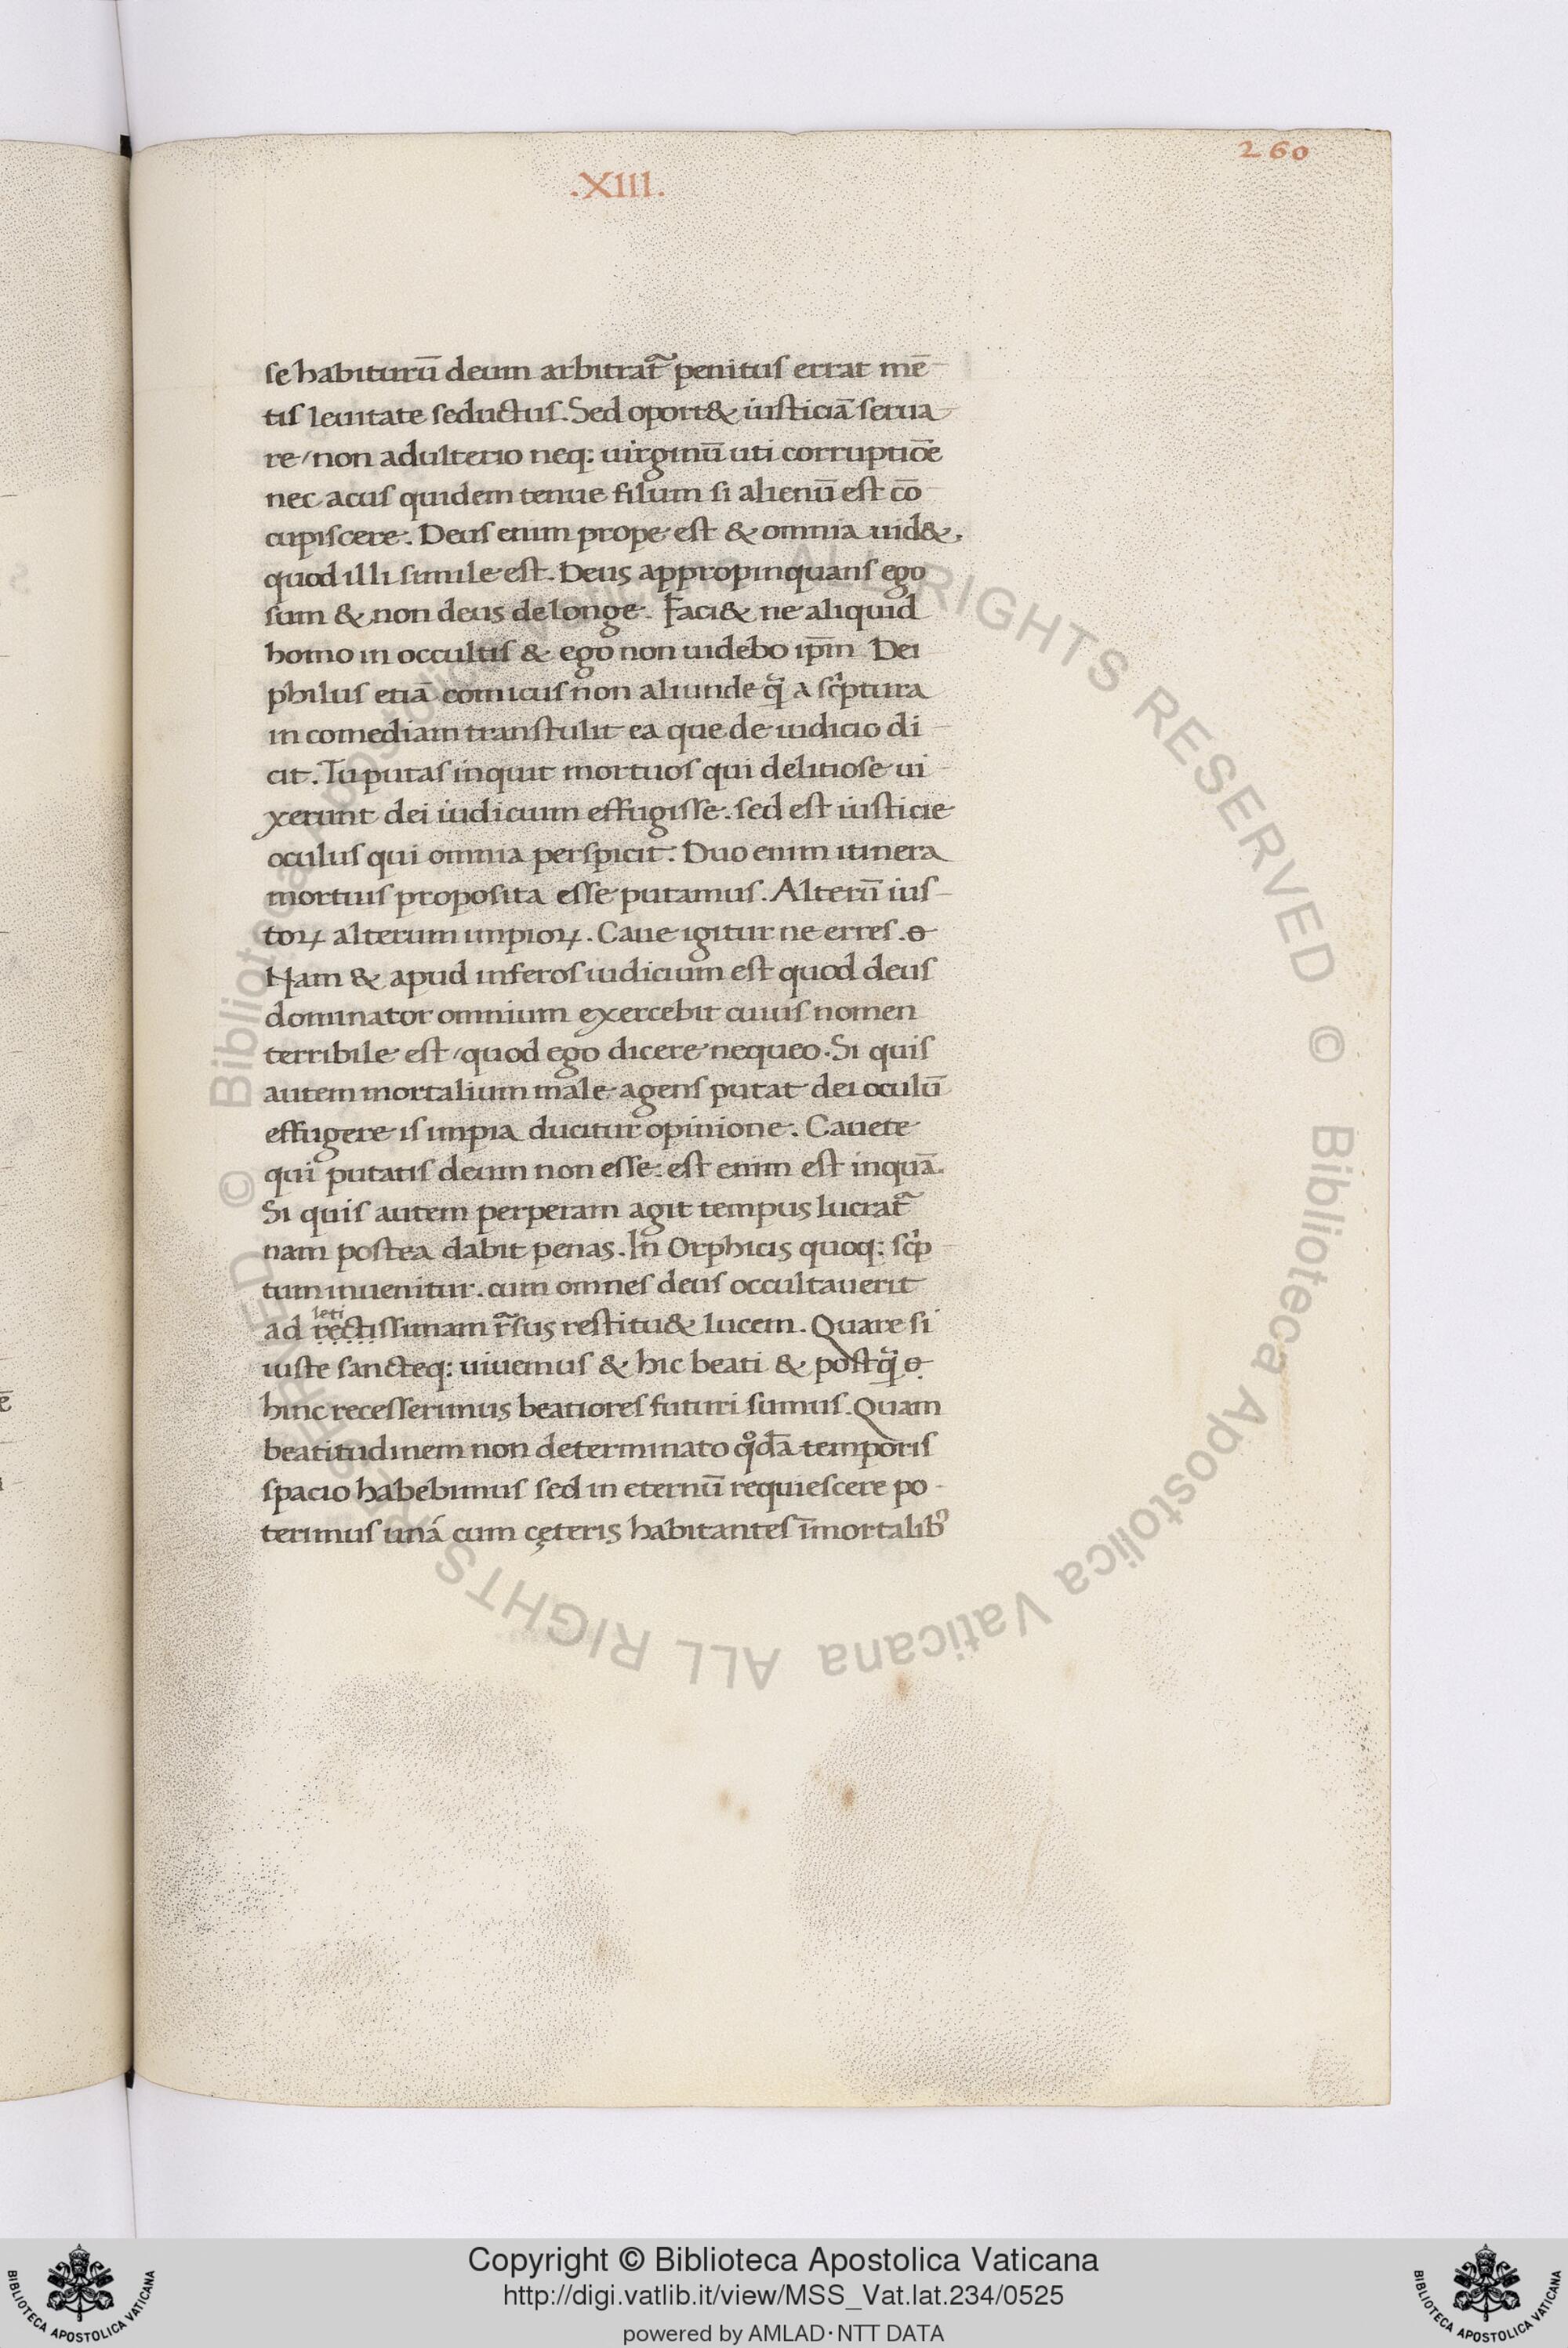 260
.XIII.
se habiturū deum arbitrat᷑ penitus errat mē
tis leuitate seductus. Sed oport& iusticiā serua
re / non adulterio neq: uirginū uti corruptiōe
nec acus quidem tenue filum si alienū est cō
cupiscere. Deus enim prope est & omnia uid&,
quod illi simile est. Deus appropinquans ego
sum & non deus de longe. Faci& ne aliquid
homo in occultis & ego non uidebo ip̄m Dei
philus etiā comicus non aliunde q̃ a sc̓ptura
in comediam transtulit ea que de iudicio di
cit. Tu putas inquit mortuos qui delitiose ui
xerunt dei iudicium effugisse. sed est iusticie
oculus qui omnia perspicit. Duo enim itinera
mortuis proposita esse putamus. Alterū ius
toꝝ alterum impioꝝ. Caue igitur ne erres. o
Nam & apud inferos iudicium est quod deus
dominator omnium exercebit cuius nomen
terribile est / quod ego dicere nequeo. Si quis
autem mortalium male agens putat dei oculū
effugere is impia ducitur opinione. Cauete
qui putatis deum non esse: est enim est inquā.
Si quis autem perperam agit tempus lucrat᷑
nam postea dabit penas. In Orphicis quoq: sc̓p
tum inuenitur. cum omnes deus occultauerit
leti
ad rectissimam r̃sus restitu& lucem. Quare si
iuste sancteq: uiuemus & hic beati & postq̃ o
hinc recesserimus beatiores futuri sumus. Quam
beatitudinem non determinato qͦdā temporis
spacio habebimus sed in eternū requiescere po
terimus uná cum cęteris habitantes īmortalibꝰ
© Biblioteca Apostolica Vaticana ALL RIGHTS RESERVED © Biblioteca Apostolica Vaticana ALL RIGHTS RESERVED
Copyright © Biblioteca Apostolica Vaticana
http://digi.vatlib.it/view/MSS_Vat.lat.234/0525
powered by AMLAD·NTT DATA
BIBLIOTECA APOSTOLICA VATICANA
BIBLIOTECA APOSTOLICA VATICANA